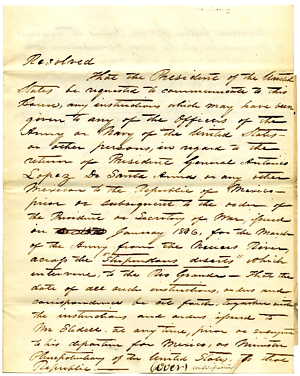 Resolved
That the President of the United
States be requested to communicate to this
House, any instructions which may have been
given to any of the Officers of the
Army or Navy of the United States
or other persons, in regard to the
return of President General Antonio
Lopez De Santa Anna or any other
Mexican to the Republic of Mexico—
prior or subsequent to the order of
the President or Secretary of War, issued
in January 1846, for the March
of the Army from the Nueces River,
across the "Stupendous deserts" which
intervene, to the Rio Grande— that the
date of all such instructions, orders and
correspondence be set forth, together with
the instructions and orders issued to
Mr Slidell at any time, prior or subsequent
to his departure for Mexico, as Minister
Plenipotentiary of the United States to that
Republic. (over)